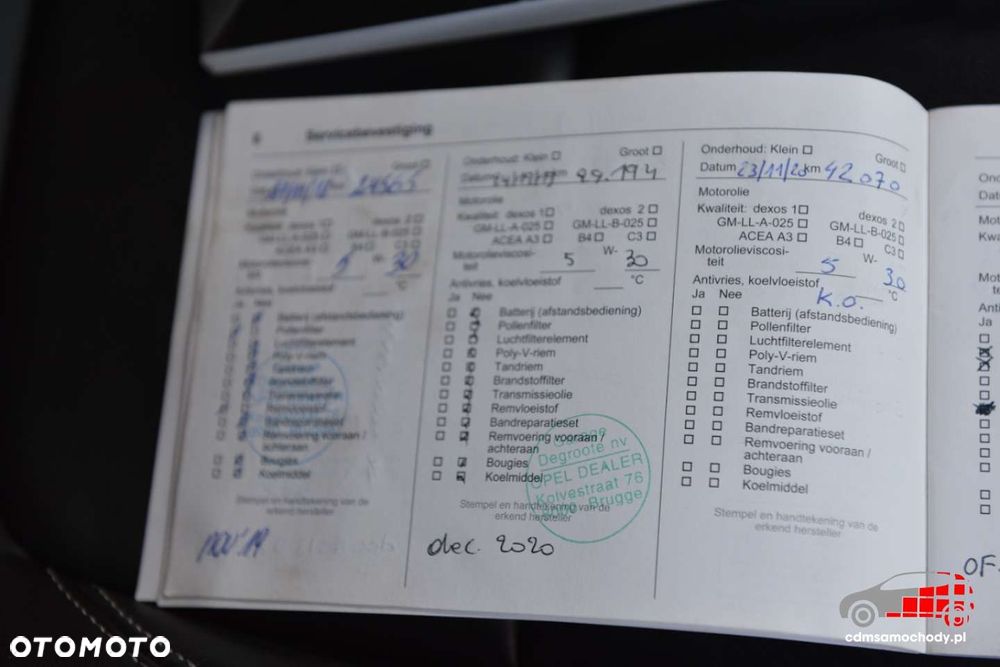 6 Servicebevestiging
Groot
24565
5 W- 30
Antivries, koelvloeistof °C
Ja Nee
Batterij (afstandsbediening)
Pollenfilter
Luchtfilterelement
Poly-V-riem
Tandriem
Brandstoffilter
Remvloeistof
Bandreparatieset
Remvoering vooraan /
achteraan
Bougies
Koelmiddel
Stempel en handtekening van de
erkend hersteller
nov '19
Onderhoud: Klein Groot
Datum km 29.194
Motorolie
Kwaliteit: dexos 1 dexos 2
GM-LL-A-025 GM-LL-B-025
ACEA A3 B4 C3
Motorolieviscosi-
teit 5 W- 30
Antivries, koelvloeistof °C
Ja Nee
Batterij (afstandsbediening)
Pollenfilter
Luchtfilterelement
Poly-V-riem
Tandriem
Brandstoffilter
Transmissieolie
Remvloeistof
Bandreparatieset
Remvoering vooraan /
achteraan
Bougies
Koelmiddel
Garage
Degroote nv
OPEL DEALER
Kolvestraat 76
8000 Brugge
Stempel en handtekening van de
erkend hersteller
dec. 2020
Onderhoud: Klein Groot
Datum 23/11/20 km 42070
Motorolie
Kwaliteit: dexos 1 dexos 2
GM-LL-A-025 GM-LL-B-025
ACEA A3 B4 C3
Motorolieviscosi-
teit 5 W- 30
Antivries, koelvloeistof K.O. °C
Ja Nee
Batterij (afstandsbediening)
Pollenfilter
Luchtfilterelement
Poly-V-riem
Tandriem
Brandstoffilter
Transmissieolie
Remvloeistof
Bandreparatieset
Remvoering vooraan /
achteraan
Bougies
Koelmiddel
Stempel en handtekening van de
erkend hersteller
Ja
OF
OTOMOTO
cdmsamochody.pl